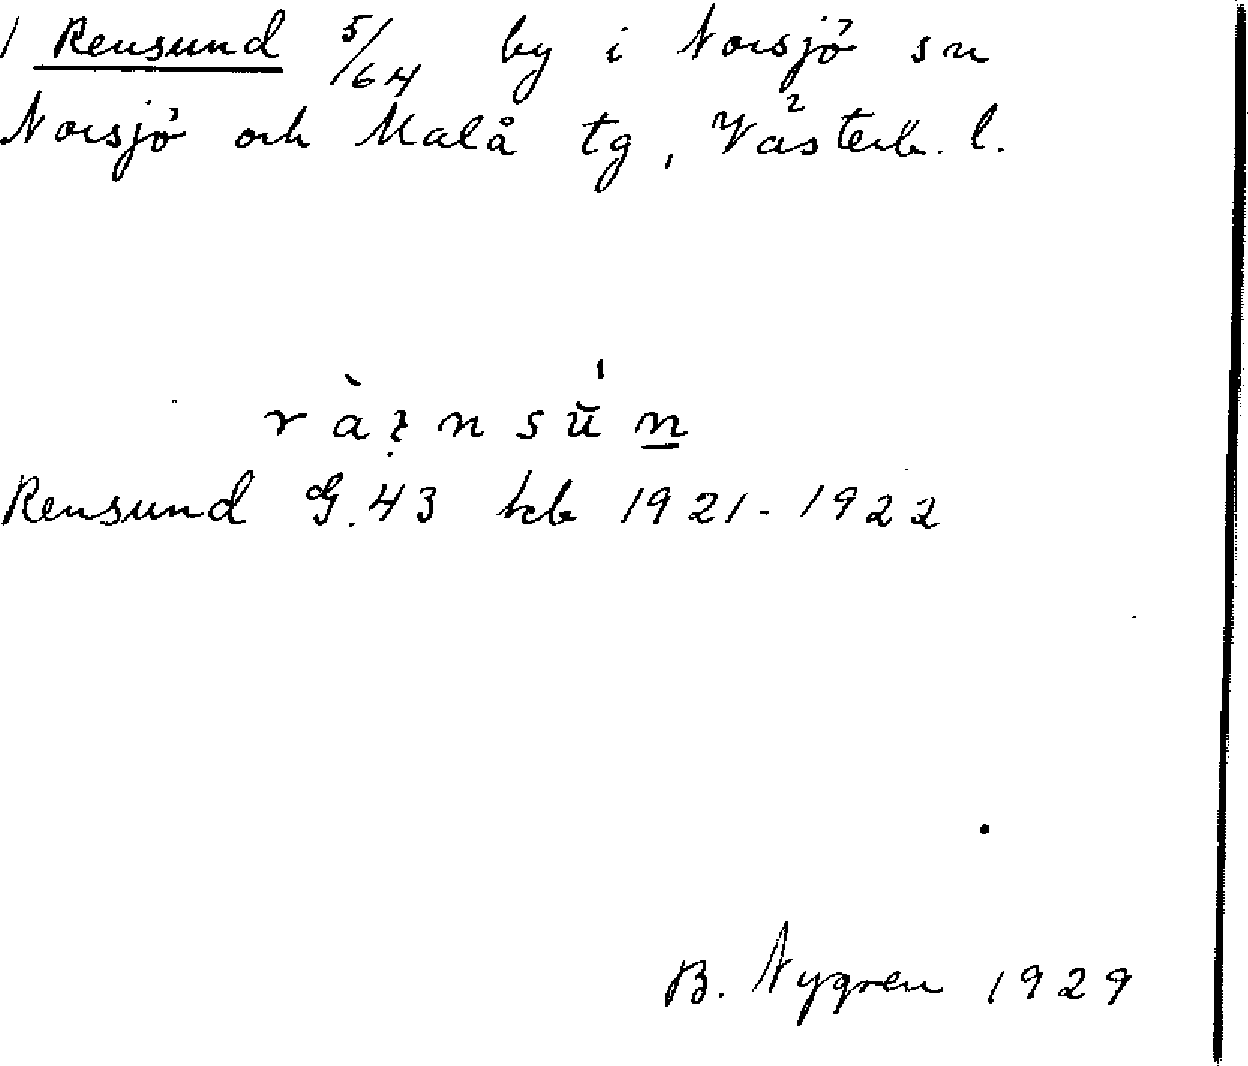 1 Rensund 5/64 by i Norsjö sn
Norsjö och Malå tg, Västerb. l.
Rensund G. 43 kb 1921-1922
B. Nygren 1929